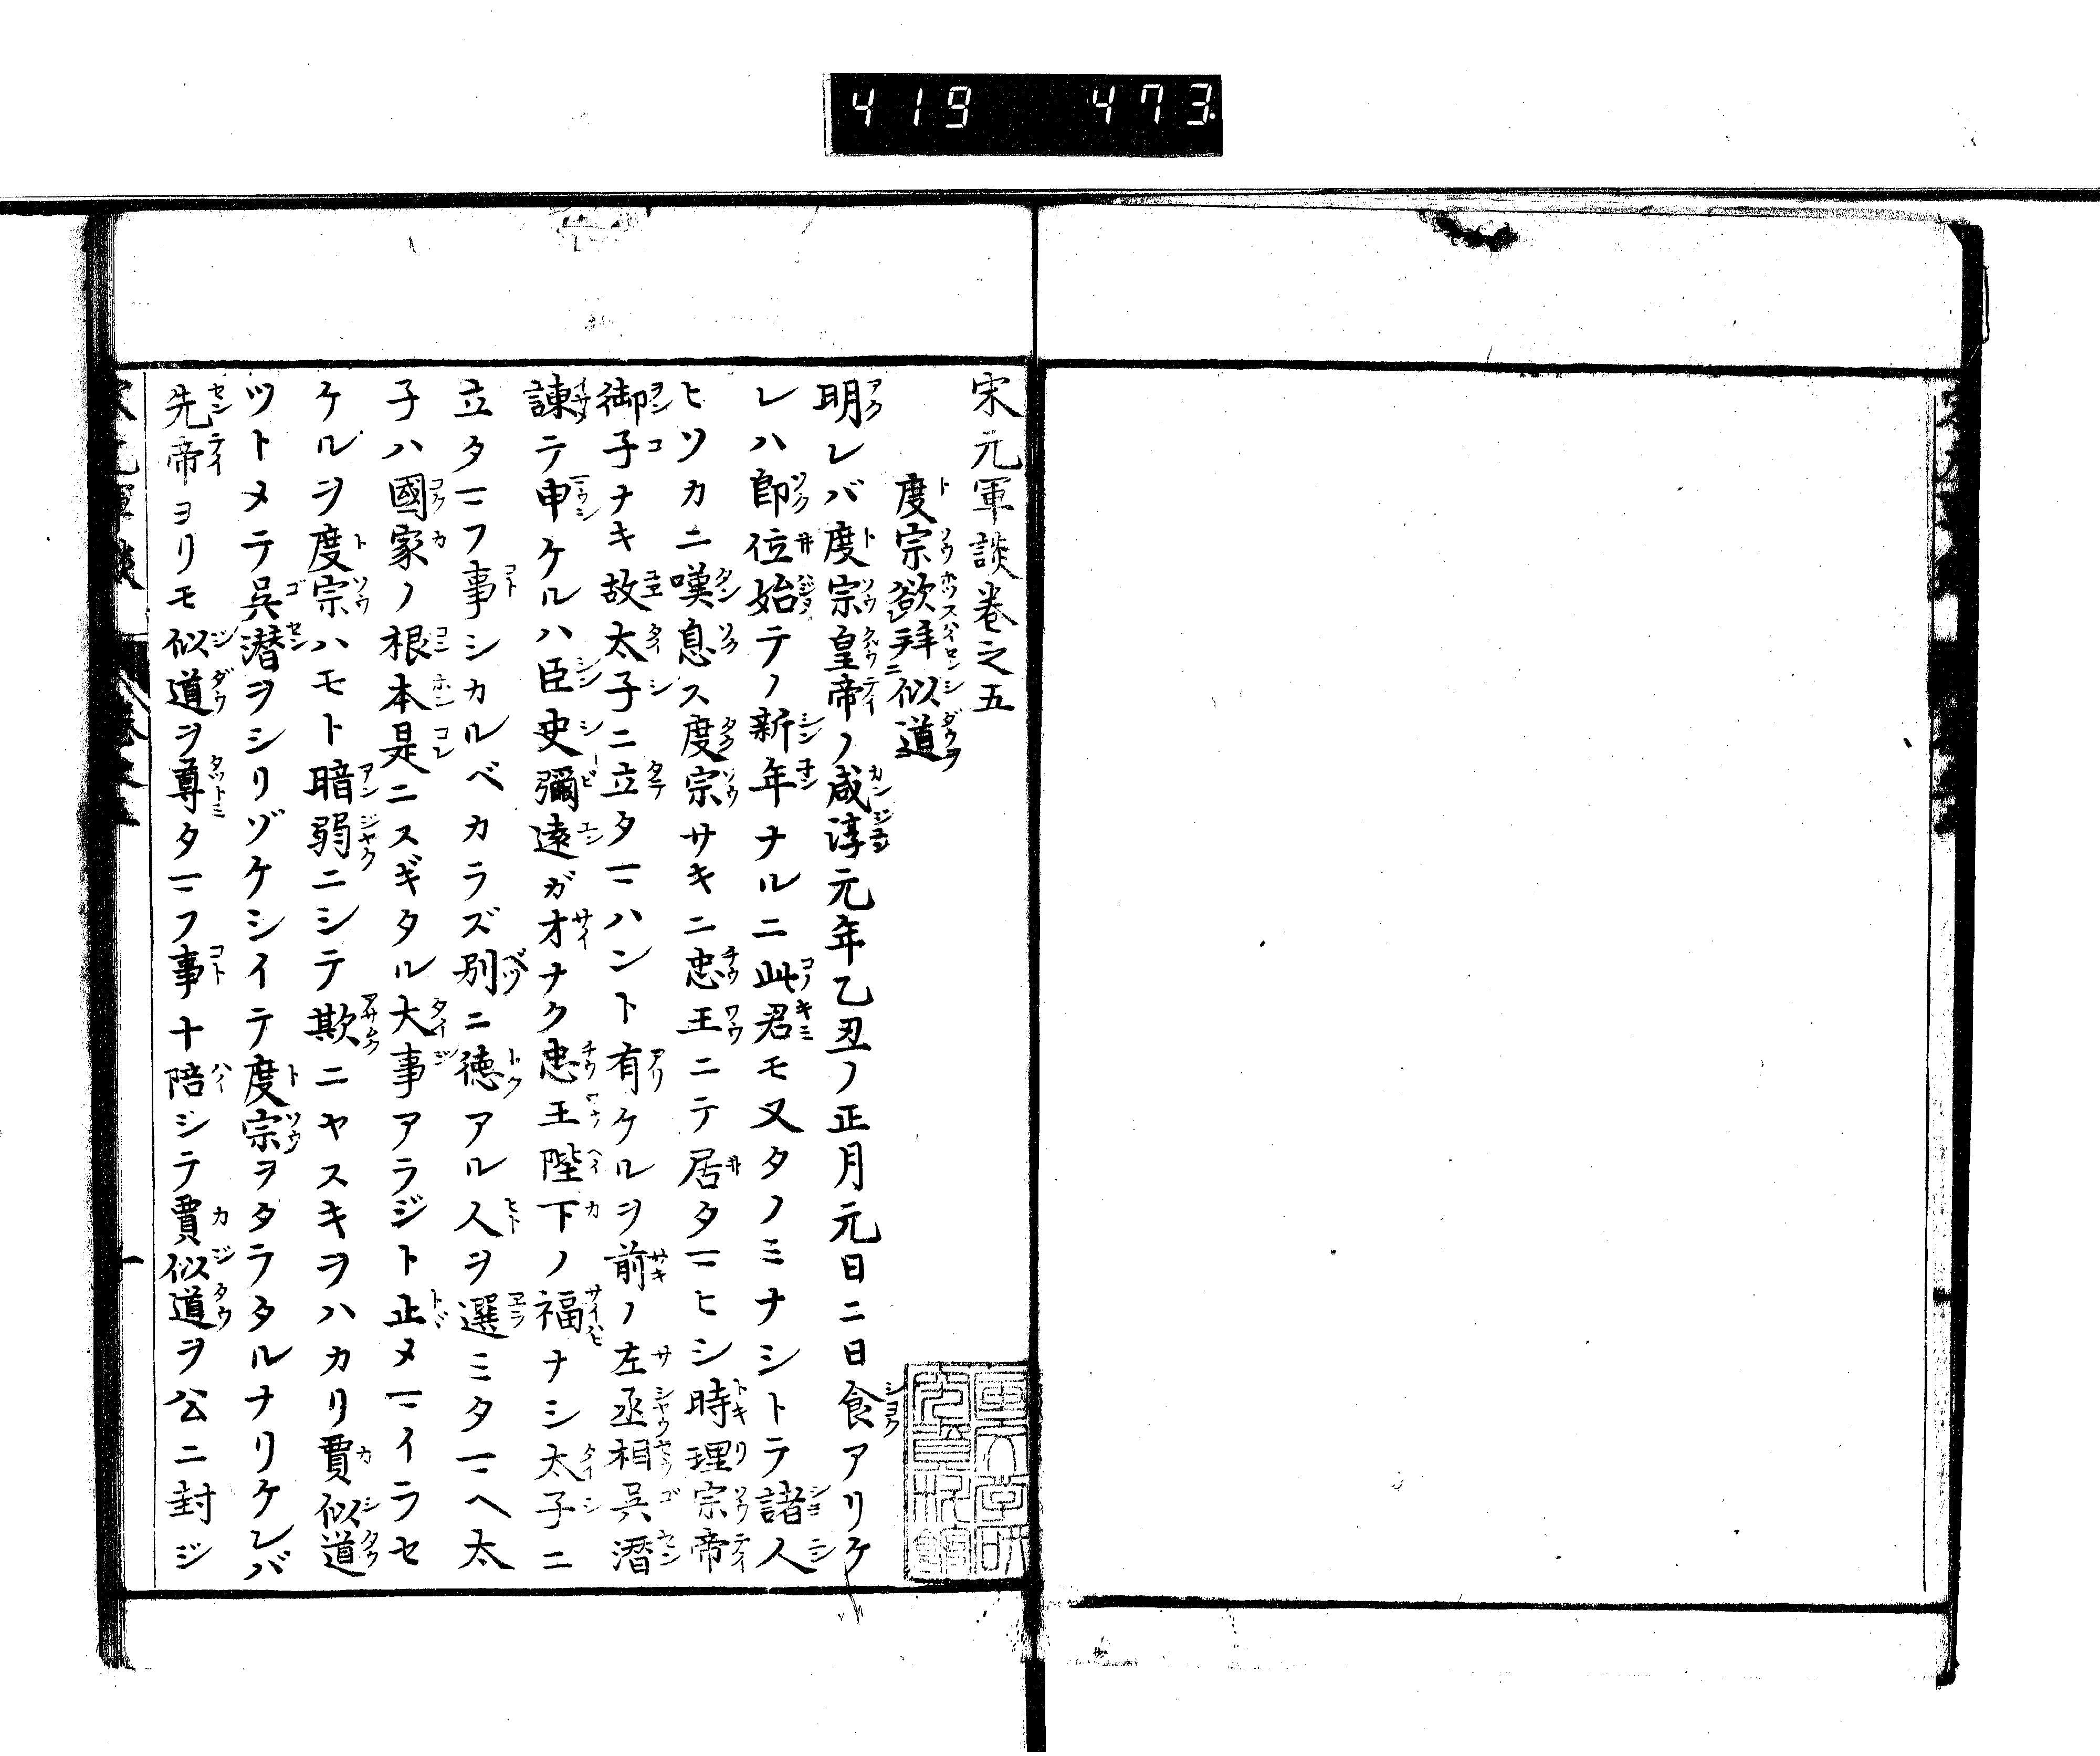 419 473
宋元軍談卷之五
度宗欲拜似道
明レバ度宗皇帝ノ咸淳元年乙丑ノ正月元日ニ日食アリケ
レハ即位始テノ新年ナルニ此君モ又タノミナシトテ諸人
ヒソカニ嘆息ス度宗サキニ忠王ニテ居タマヒシ時理宗帝
御子ナキ故太子ニ立タマハント有ケルヲ前ノ左丞相呉潛
諌テ申ケルハ臣史彌遠ガオナク忠王陛下ノ福ナシ太子ニ
立タマフ事シカルベカラズ別ニ徳アル人ヲ選ミタマヘ太
子ハ國家ノ根本是ニスギタル大事アラジト止メマイラセ
ケルヲ度宗ハモト暗弱ニシテ欺ニヤスキヲハカリ賈似道
ツトメテ呉潛ヲシリゾケシイテ度宗ヲタラタルナリケレバ
先帝ヨリモ似道ヲ尊タマフ事十陪シテ賈似道ヲ公ニ封ジ